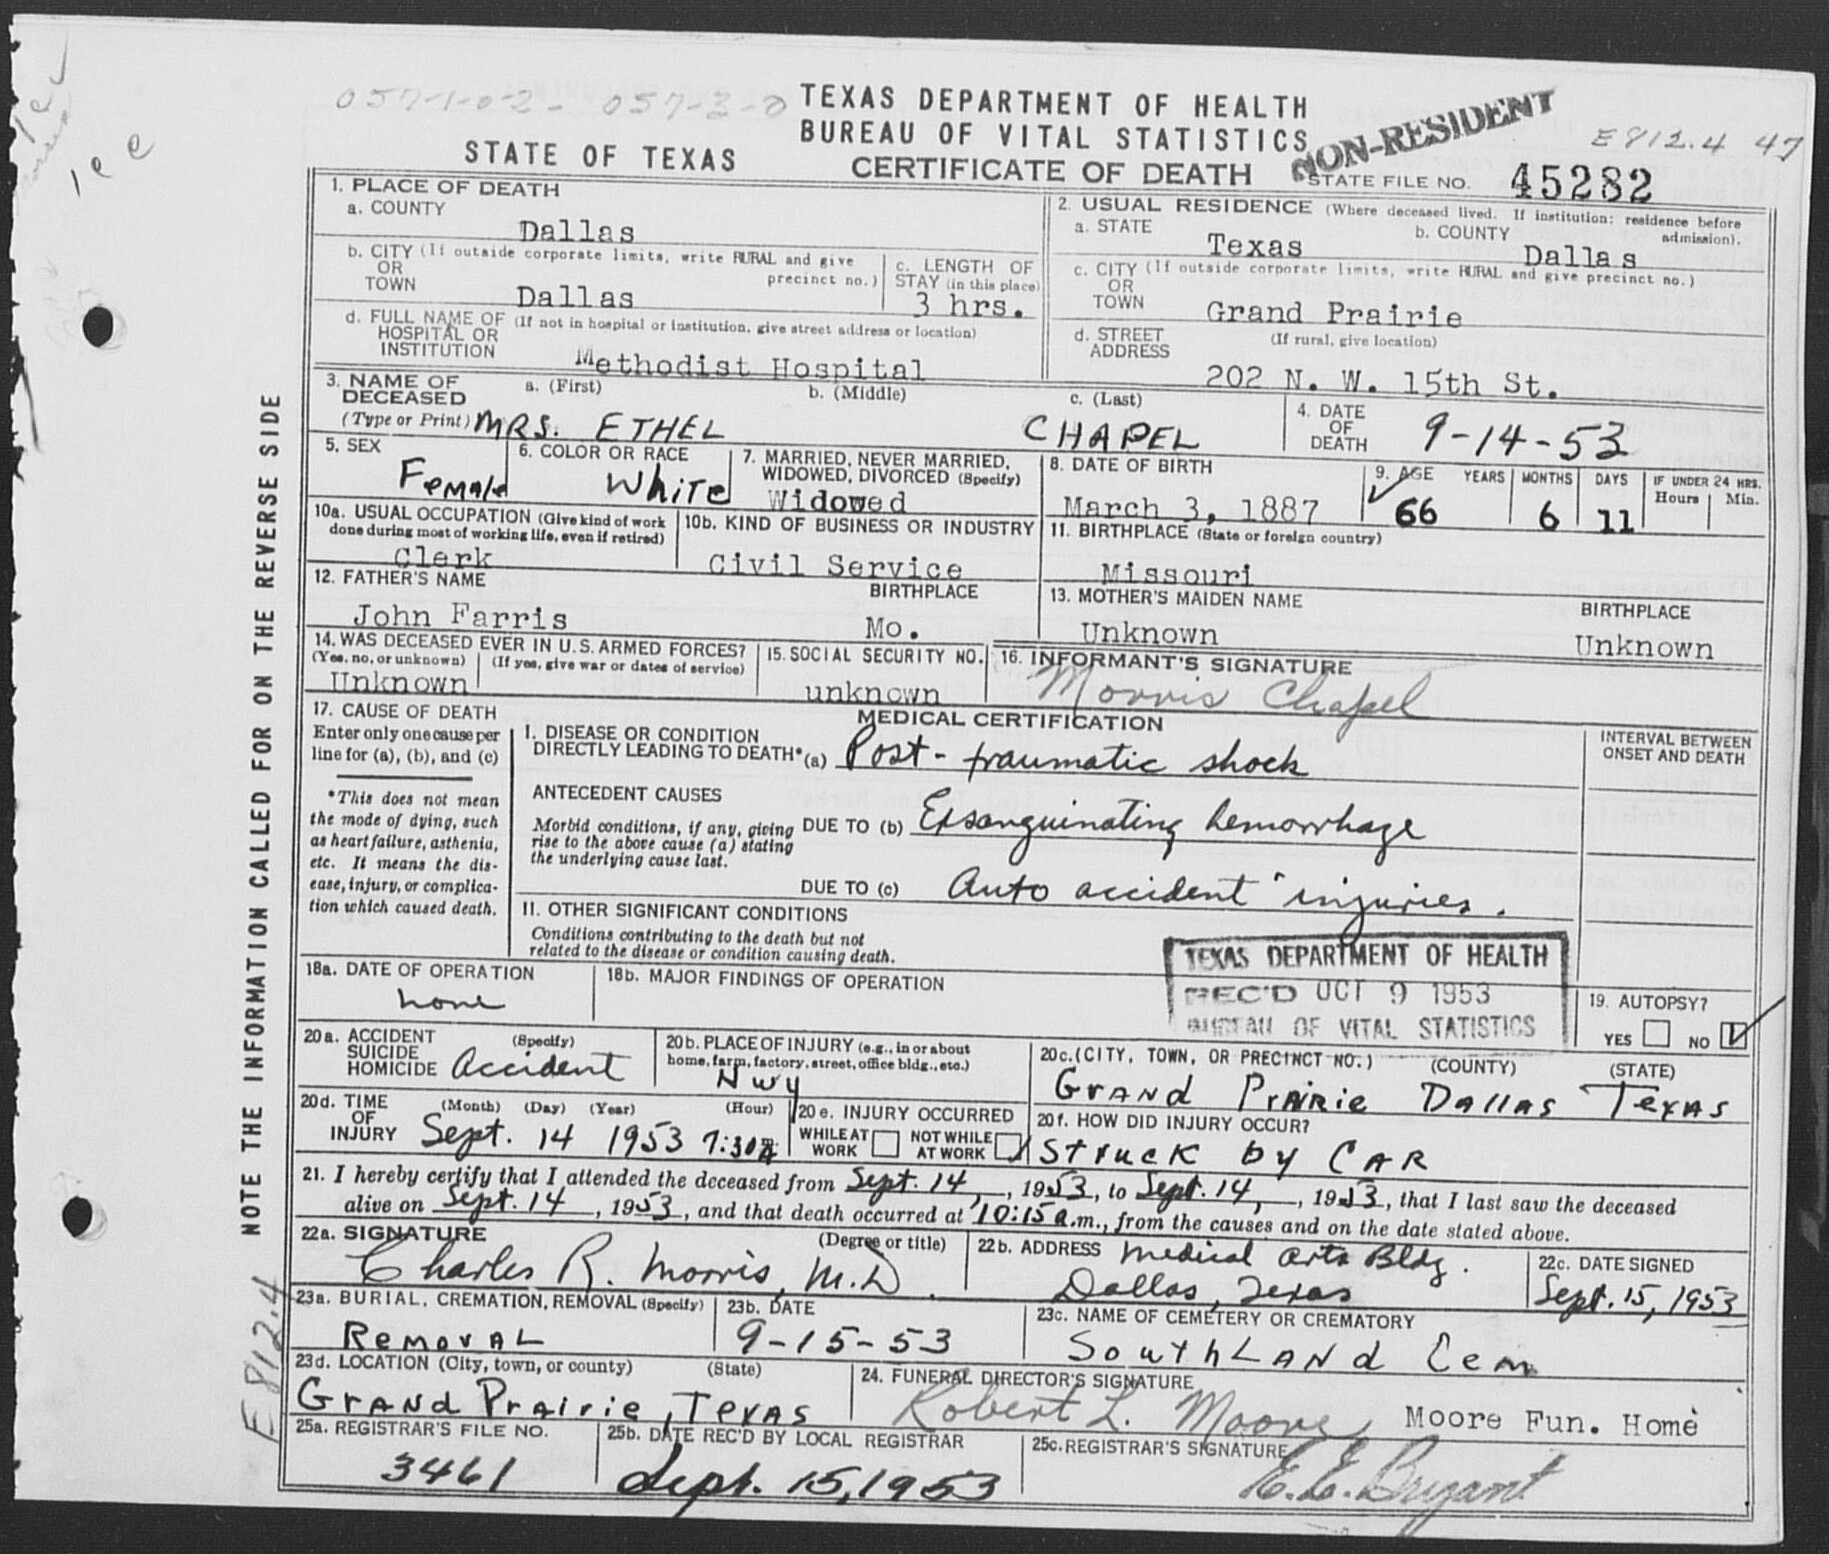 057-1-0-2- 057-3-0
TEXAS DEPARTMENT OF HEALTH
BUREAU OF VITAL STATISTICS
STATE OF TEXAS
CERTIFICATE OF DEATH
NON-RESIDENT
E812.4 47
STATE FILE NO. 45282
1. PLACE OF DEATH
a. COUNTY
Dallas
b. CITY (If outside corporate limits, write RURAL and give precinct no.)
OR
TOWN
Dallas
c. LENGTH OF
STAY (in this place)
3 hrs.
d. FULL NAME OF (If not in hospital or institution, give street address or location)
HOSPITAL OR
INSTITUTION
Methodist Hospital
2. USUAL RESIDENCE (Where deceased lived. If institution: residence before admission).
a. STATE
Texas
b. COUNTY
Dallas
c. CITY (If outside corporate limits, write RURAL and give precinct no.)
OR
TOWN
Grand Prairie
d. STREET
ADDRESS
(If rural, give location)
202 N. W. 15th St.
3. NAME OF
DECEASED
(Type or Print)
a. (First)
b. (Middle)
c. (Last)
MRS. ETHEL CHAPEL
4. DATE
OF
DEATH
9-14-53
5. SEX
Female
6. COLOR OR RACE
White
7. MARRIED, NEVER MARRIED,
WIDOWED, DIVORCED (Specify)
Widowed
8. DATE OF BIRTH
March 3, 1887
9. AGE YEARS MONTHS DAYS
66 6 11
IF UNDER 24 HRS.
Hours Min.
10a. USUAL OCCUPATION (Give kind of work
done during most of working life, even if retired)
Clerk
10b. KIND OF BUSINESS OR INDUSTRY
Civil Service
11. BIRTHPLACE (State or foreign country)
Missouri
12. FATHER'S NAME BIRTHPLACE
John Farris Mo.
13. MOTHER'S MAIDEN NAME BIRTHPLACE
Unknown Unknown
14. WAS DECEASED EVER IN U.S. ARMED FORCES?
(Yes, no, or unknown) (If yes, give war or dates of service)
Unknown
15. SOCIAL SECURITY NO.
unknown
16. INFORMANT'S SIGNATURE
Morris Chapel
17. CAUSE OF DEATH
Enter only one cause per
line for (a), (b), and (c)
*This does not mean
the mode of dying, such
as heart failure, asthenia,
etc. It means the dis-
ease, injury, or complica-
tion which caused death.
MEDICAL CERTIFICATION
I. DISEASE OR CONDITION
DIRECTLY LEADING TO DEATH* (a) Post-traumatic shock
ANTECEDENT CAUSES
Morbid conditions, if any, giving
rise to the above cause (a) stating
the underlying cause last.
DUE TO (b) Exsanguinating hemorrhage
DUE TO (c) Auto accident injuries.
II. OTHER SIGNIFICANT CONDITIONS
Conditions contributing to the death but not
related to the disease or condition causing death.
INTERVAL BETWEEN
ONSET AND DEATH
18a. DATE OF OPERATION
none
18b. MAJOR FINDINGS OF OPERATION
TEXAS DEPARTMENT OF HEALTH
REC'D OCT 9 1953
BUREAU OF VITAL STATISTICS
19. AUTOPSY?
YES NO
20a. ACCIDENT
SUICIDE
HOMICIDE
(Specify)
Accident
20b. PLACE OF INJURY (e.g., in or about
home, farm, factory, street, office bldg., etc.)
Hwy
20c. (CITY, TOWN, OR PRECINCT NO.) (COUNTY) (STATE)
Grand Prairie Dallas Texas
20d. TIME
OF
INJURY
(Month) (Day) (Year) (Hour)
Sept. 14 1953 7:30a m.
20e. INJURY OCCURRED
WHILE AT
WORK
NOT WHILE
AT WORK
20f. HOW DID INJURY OCCUR?
Struck by Car
21. I hereby certify that I attended the deceased from Sept. 14, 1953, to Sept. 14, 1953, that I last saw the deceased
alive on Sept. 14, 1953, and that death occurred at 10:15 a.m., from the causes and on the date stated above.
22a. SIGNATURE (Degree or title)
Charles R. Morris, M.D.
22b. ADDRESS Medical Arts Bldg.
Dallas, Texas
22c. DATE SIGNED
Sept. 15, 1953
23a. BURIAL, CREMATION, REMOVAL (Specify)
Removal
23b. DATE
9-15-53
23c. NAME OF CEMETERY OR CREMATORY
Southland Cem
23d. LOCATION (City, town, or county) (State)
Grand Prairie, Texas
24. FUNERAL DIRECTOR'S SIGNATURE
Robert L. Moore Moore Fun. Home
25a. REGISTRAR'S FILE NO.
3461
25b. DATE REC'D BY LOCAL REGISTRAR
Sept. 15, 1953
25c. REGISTRAR'S SIGNATURE
E. E. Bryant
NOTE THE INFORMATION CALLED FOR ON THE REVERSE SIDE
E812.4